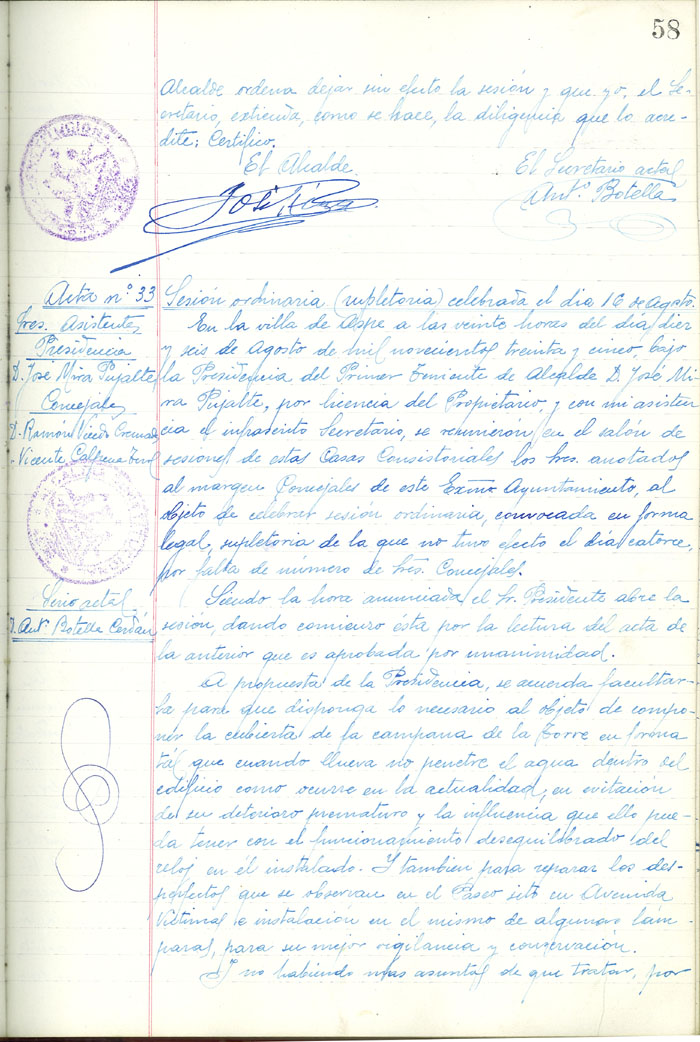 58
Alcalde ordena dejar sin efecto la sesión y que yo, el Se-
cretario, extienda, como se hace, la diligencia que lo acre-
dite; Certifico.
El Alcalde
El Secretario actal
José Mira
Antº Botella
Acta nº 33
Sres. Asistentes
Presidencia
D. José Mira Pujalte
Concejales
D. Ramón Cremades
- Vicente Calpena
Srio actal
D. Antº Botella Cerdán
Sesión ordinaria (supletoria) celebrada el dia 16 de Agosto.
En la villa de Aspe a las veinte horas del día diez
y seis de Agosto de mil novecientos treinta y cinco, bajo
la Presidencia del Primer Teniente de Alcalde D. José Mi
ra Pujalte, por licencia del Propietario, y con mi asisten
cia el infrascrito Secretario, se reunieron en el salón de
sesiones de estas Casas Consistoriales los Sres. anotados
al margen Concejales de este Exmo Ayuntamiento, al
objeto de celebrar sesión ordinaria, convocada en forma
legal, supletoria de la que no tuvo efecto el dia catorce,
por falta de número de Sres. Concejales.
Siendo la hora anunciada el Sr. Presidente abre la
sesión, dando comienzo ésta por la lectura del acta de
la anterior que es aprobada por unanimidad.
A propuesta de la Presidencia, se acuerda facultar-
la para que disponga lo necesario al objeto de compo-
ner la cubierta de la campana de la Torre en forma
tál que cuando llueva no penetre el agua dentro del
edificio como ocurre en la actualidad, en evitación
de su deterioro prematuro y la influencia que ello pue-
da tener con el funcionamiento desequilibrado del
reloj en él instalado. Y tambien para reparar los des-
perfectos que se observan en el Paseo sito en Avenida
Victimas e instalación en el mismo de algunas lám
paras, para su mejor vigilancia y conservación.
Y no habiendo mas asuntos de que tratar, por